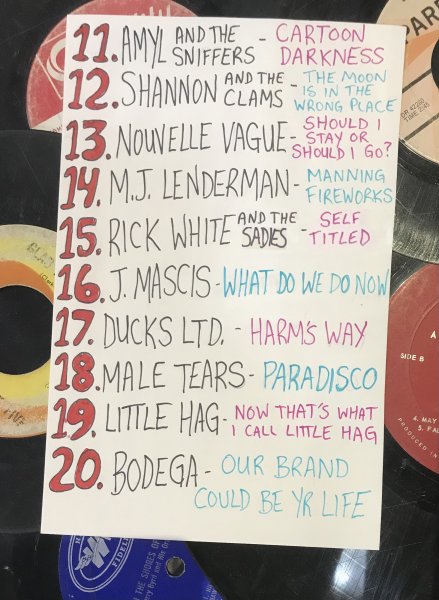 11. AMYL AND THE SNIFFERS - CARTOON DARKNESS
12. SHANNON AND THE CLAMS - THE MOON IS IN THE WRONG PLACE
13. NOUVELLE VAGUE - SHOULD I STAY OR SHOULD I GO?
14. M.J. LENDERMAN - MANNING FIREWORKS
15. RICK WHITE AND THE SADIES - SELF TITLED
16. J. MASCIS - WHAT DO WE DO NOW
17. DUCKS LTD. - HARM'S WAY
18. MALE TEARS - PARADISCO
19. LITTLE HAG - NOW THAT'S WHAT I CALL LITTLE HAG
20. BODEGA - OUR BRAND COULD BE YR LIFE
SIDE B
4. MAY
PRODUCED IN
TIME 2:45
FIDEL
THE SHORES OF